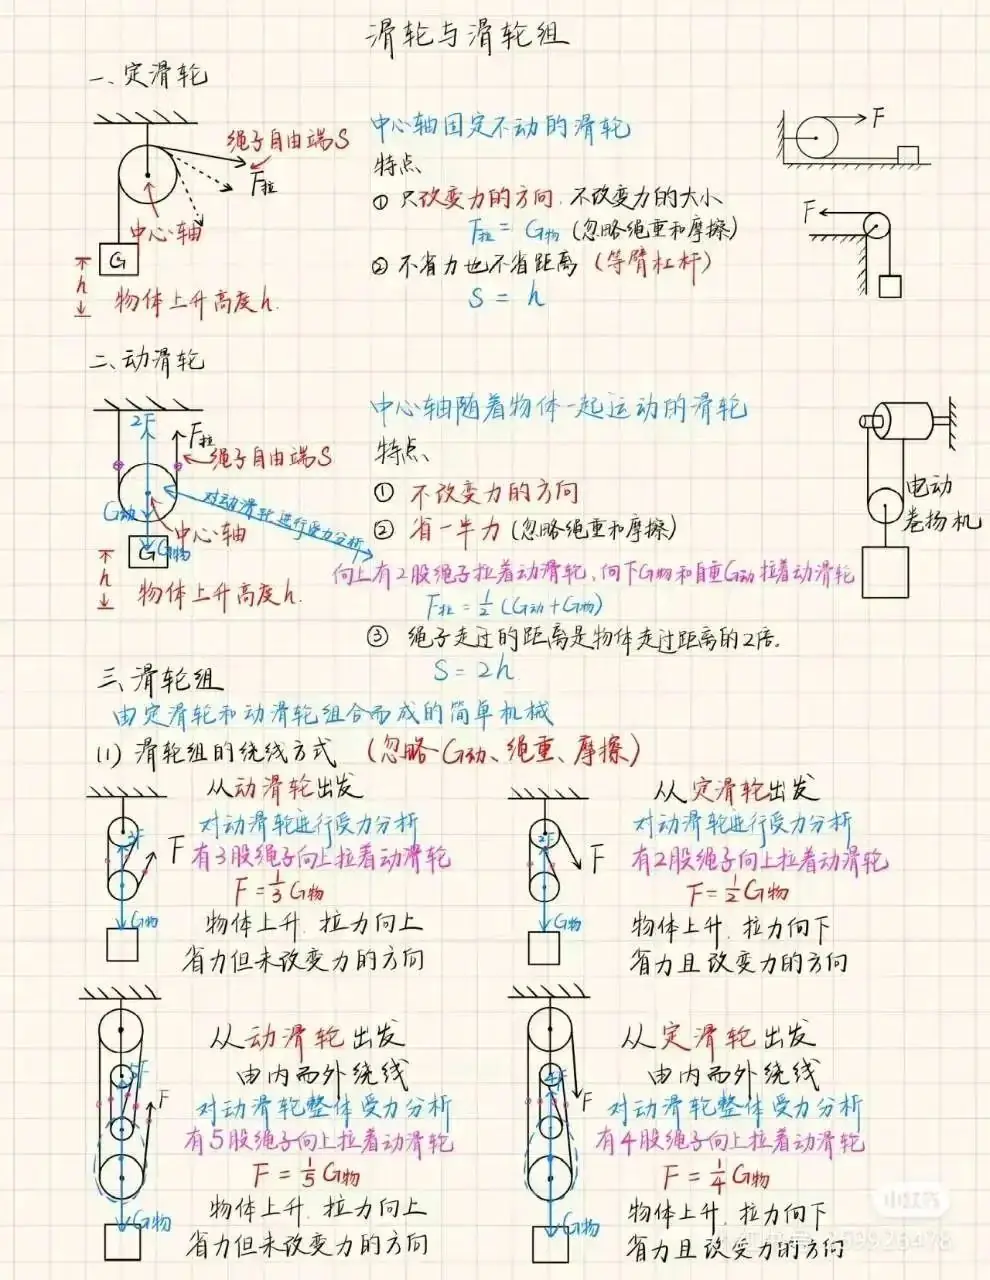 滑轮与滑轮组
一、定滑轮
绳子自由端S
F拉
中心轴
G
h
物体上升高度h.
中心轴固定不动的滑轮
特点
① 只改变力的方向,不改变力的大小
F拉 = G物 (忽略绳重和摩擦)
② 不省力也不省距离 (等臂杠杆)
S = h
F
F
二、动滑轮
2F
F拉
绳子自由端S
G动
对动滑轮进行受力分析
中心轴
G
G物
h
物体上升高度h.
中心轴随着物体一起运动的滑轮
特点
① 不改变力的方向
② 省一半力 (忽略绳重和摩擦)
向上有2股绳子拉着动滑轮,向下G物和自重G动拉着动滑轮
F拉 = 1/2 (G动+G物)
③ 绳子走过的距离是物体走过距离的2倍.
S = 2h
电动
卷扬机
三、滑轮组
由定滑轮和动滑轮组合而成的简单机械
(1) 滑轮组的绕线方式 (忽略G动、绳重、摩擦)
从动滑轮出发
对动滑轮进行受力分析
有3股绳子向上拉着动滑轮
F = 1/3 G物
物体上升,拉力向上
省力但未改变力的方向
3F
F
G物
从定滑轮出发
对动滑轮进行受力分析
有2股绳子向上拉着动滑轮
F = 1/2 G物
物体上升,拉力向下
省力且改变力的方向
2F
F
G物
从动滑轮出发
由内而外绕线
对动滑轮整体受力分析
有5股绳子向上拉着动滑轮
F = 1/5 G物
物体上升,拉力向上
省力但未改变力的方向
5F
F
G物
从定滑轮出发
由内而外绕线
对动滑轮整体受力分析
有4股绳子向上拉着动滑轮
F = 1/4 G物
物体上升,拉力向下
省力且改变力的方向
4F
F
G物
小红书